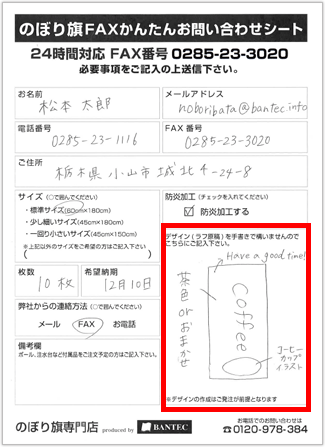 のぼり旗FAXかんたんお問い合わせシート
24時間対応 FAX番号 0285-23-3020
必要事項をご記入の上送信下さい。
お名前
松本 太郎
メールアドレス
noboribata@bantec.info
電話番号
0285-23-1116
FAX番号
0285-23-3020
ご住所
栃木県 小山市 城北 4-24-8
サイズ (○で囲んで下さい)
・標準サイズ(60cm×180cm)
・少し細いサイズ(45cm×180cm)
・一回り小さいサイズ(45cm×150cm)
※上記以外のサイズをご希望の方はご記入下さい
( )
防炎加工 (チェックを入れてください)
防炎加工する
デザイン(ラフ原稿)を手書きで構いませんので
こちらにご記入下さい。
Have a good time!
coffee
茶色 or おまかせ
コーヒー
カップ
イラスト
※デザインの作成はご発注が前提となります
枚数
10枚
希望納期
12月10日
弊社からの連絡方法 (○で囲んで下さい)
メール FAX お電話
備考欄
ポール、注水台など付属品をご注文予定の方はご記入下さい。
のぼり旗専門店 produced by BANTEC
お電話でのお問い合わせは
0120-978-384